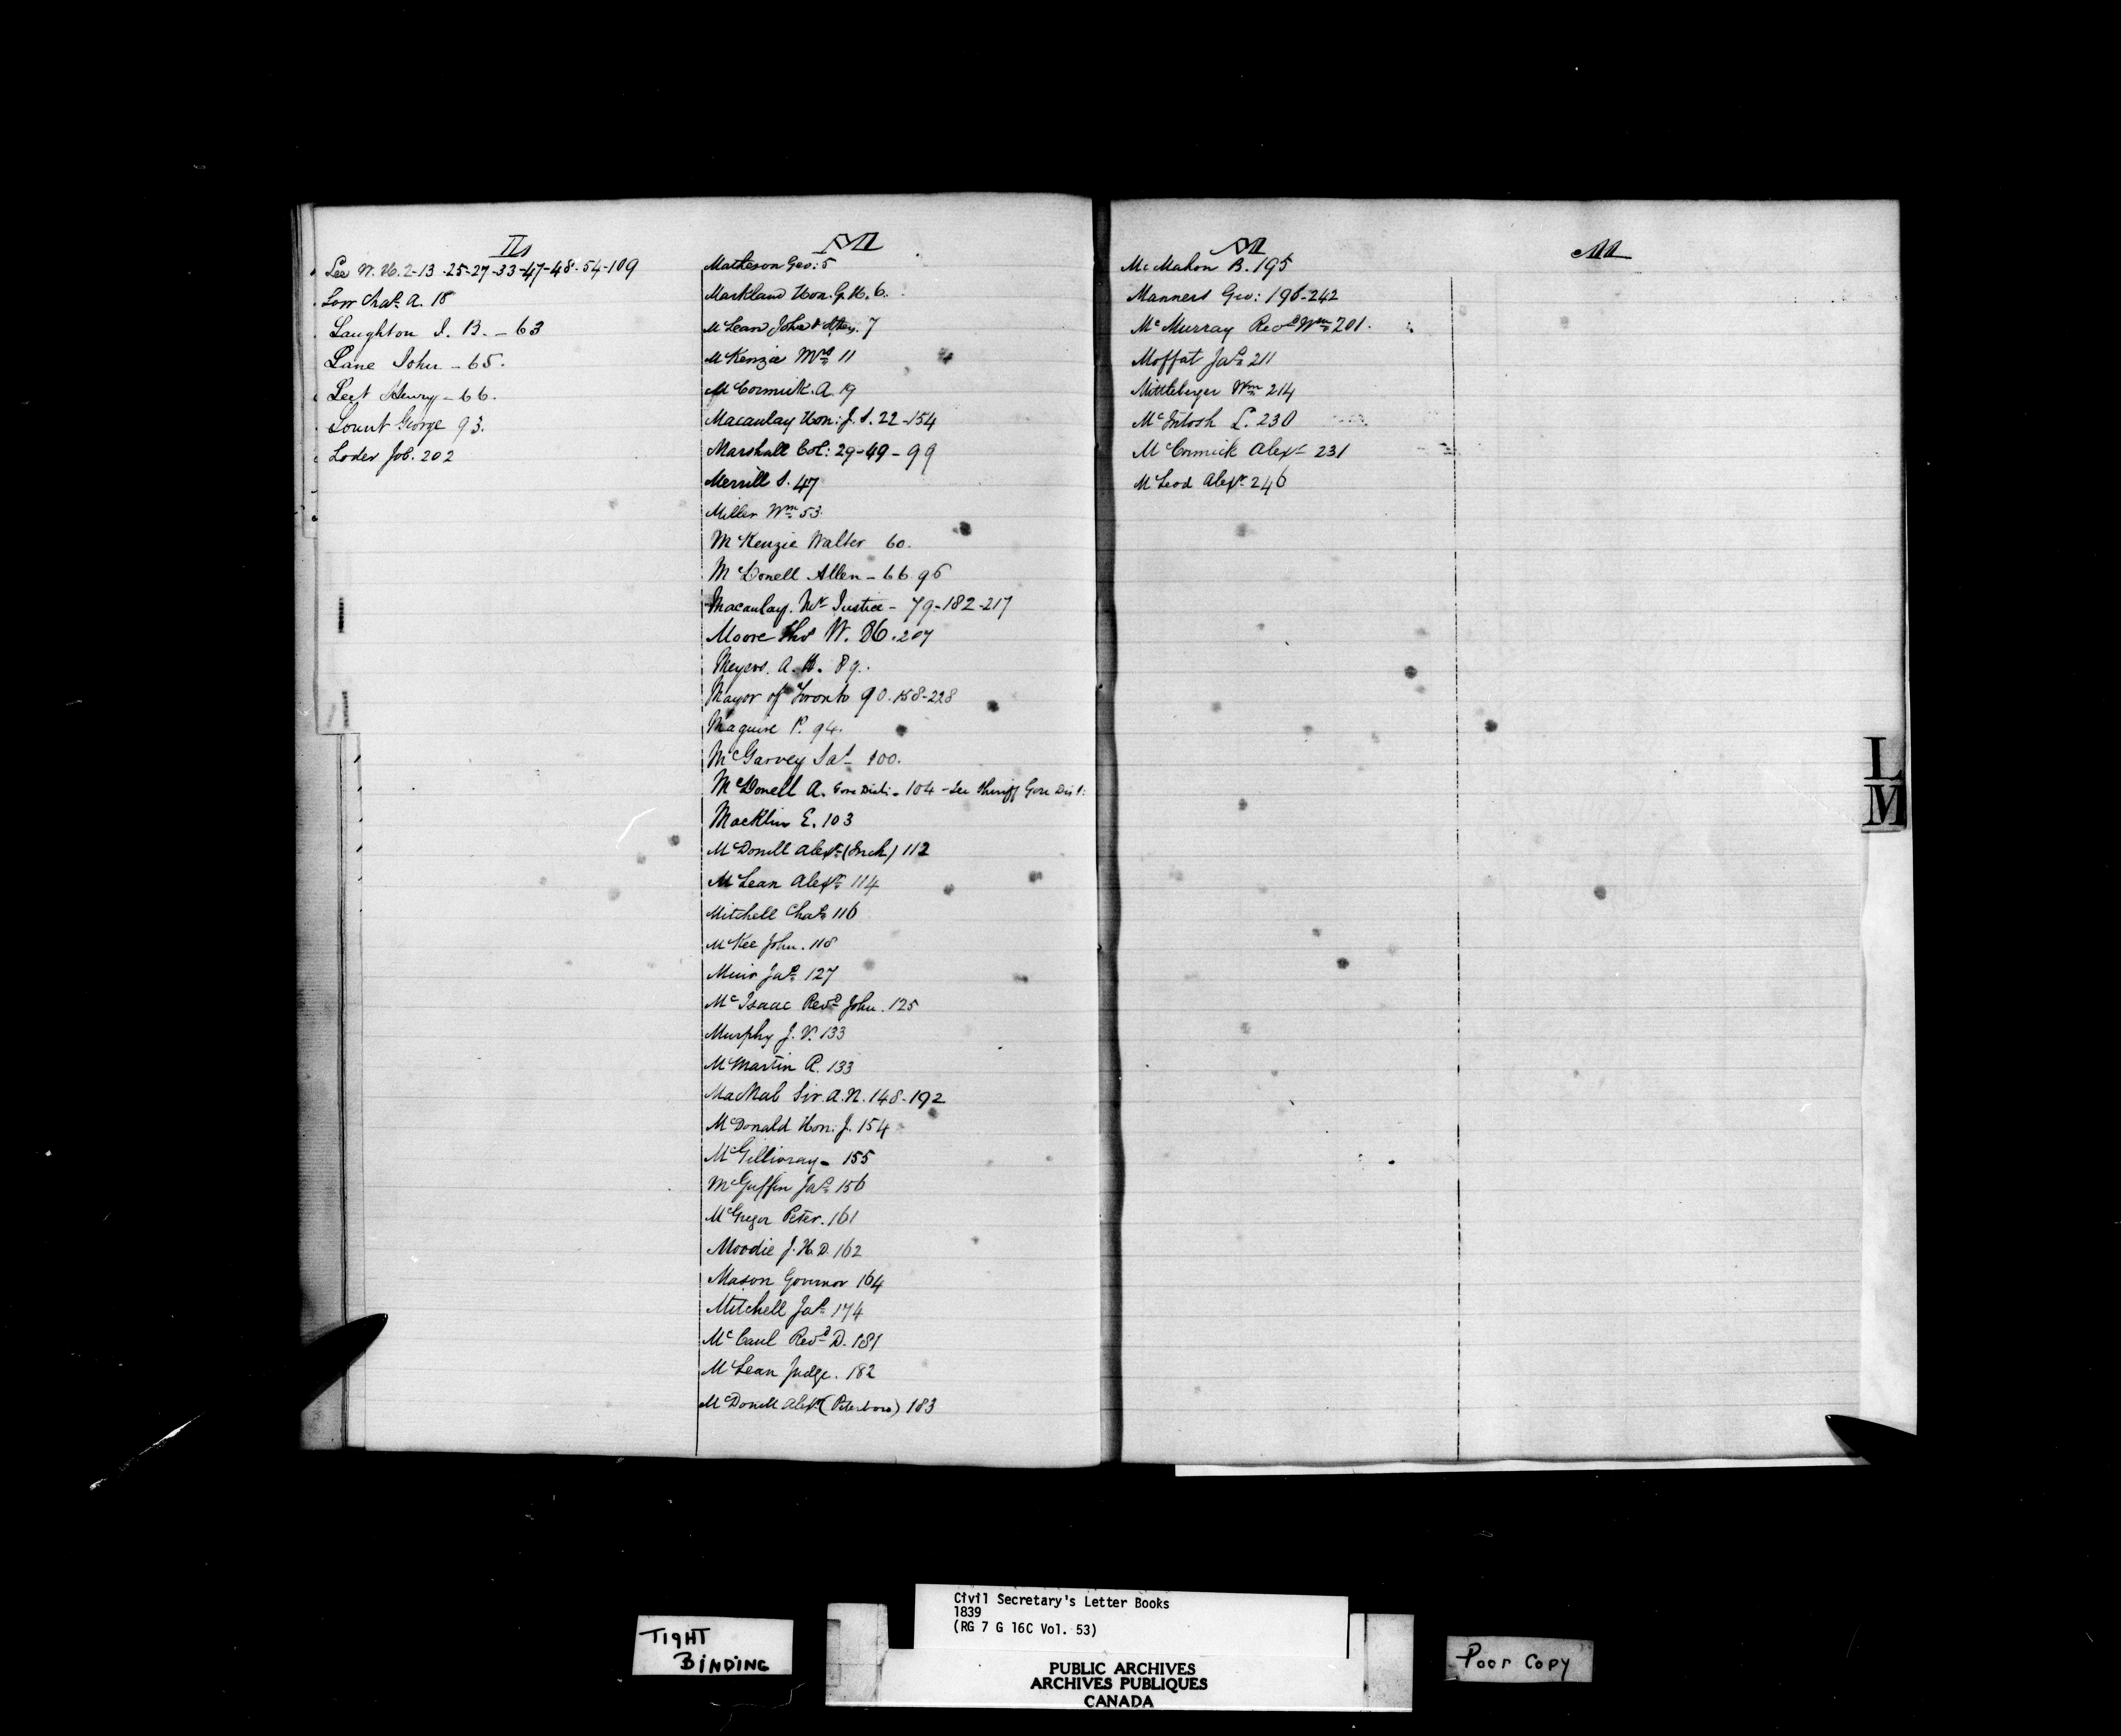 L
Lee W. H. 2-13-25-27-33-47-48-54-109
Low Chas. A. 18
Laughton J. B. - 63
Lane John - 65.
Leet Henry - 66.
Lount George 93.
Loder Job. 202
M
Matheson Geo: 5
Markland Hon. G. H. 6.
McLean John & 7
McKenzie Mrs 11
McCormick. A. 19
Macaulay Hon: J. S. 22-154
Marshall Col: 29-49-99
Merrill S. 47
Miller Wm 53.
McKenzie Walter 60.
McDonell Allen - 66 96
Macaulay. Mr Justice - 79-182-217
Moore Thos W. 86.207
Meyers. A. H. 89.
Mayor of Toronto 90.158-228
Maguire P. 94.
McGarvey Jas 100.
McDonell A. Gore Dist: - 104 - See Sheriff Gore Dist:
Macklin E. 103
McDonell Alexr (Inch) 112
McLean Alexr 114
Mitchell Chas 116
McKee John. 118
Muir Jas 127
McIsaac Revd John. 125
Murphy J. V. 133
McMartin A. 133
MacNab Sir. A. N. 148-192
McDonald Hon: J. 154
McGillivray - 155
McGuffin Jas 156
McGregor Peter. 161
Moodie J. H. D. 162
Mason Governor 164
Mitchell Jas 174
McCaul Revd D. 181
McLean Judge. 182
McDonell Alexr (Peterboro) 183
M
McMahon B. 195
Manners Geo: 196-242
McMurray Revd Wm 201.
Moffat Jas 211
Mittleberger Wm 214
McIntosh L. 230
McCormick Alexr 231
McLeod Alexr 246
M
L
M
TIGHT
BINDING
Civil Secretary's Letter Books
1839
(RG 7 G 16C Vol. 53)
PUBLIC ARCHIVES
ARCHIVES PUBLIQUES
CANADA
Poor Copy